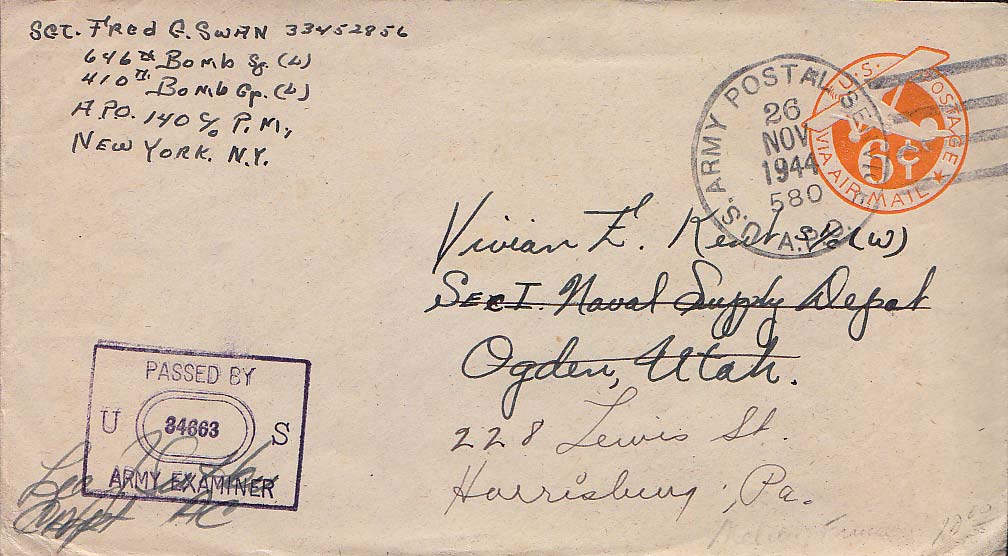 SGT. FRED G. SWAN 33452856
646th Bomb Sq. (L)
410th Bomb Gp. (L)
A.P.O. 140 c/o P.M.,
NEW YORK. N.Y.
U.S. POSTAGE
6¢
VIA AIR MAIL
U.S. ARMY POSTAL SERVICE
A.P.O.
26
NOV
1944
580
Vivian E. Kent S/2c (W)
Sec I. Naval Supply Depot
Ogden, Utah.
228 Lewis St.
Harrisburg, Pa.
PASSED BY
U 34663 S
ARMY EXAMINER
Capt AC